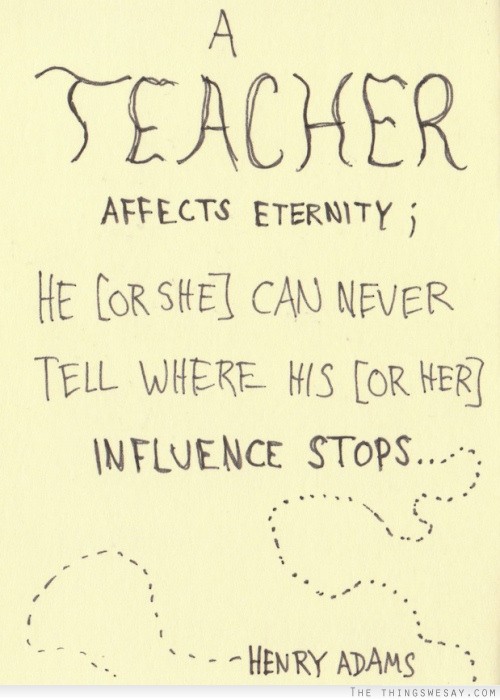 A
TEACHER
AFFECTS ETERNITY ;
HE [OR SHE] CAN NEVER
TELL WHERE HIS [OR HER]
INFLUENCE STOPS...
- HENRY ADAMS
THE THINGSWESAY.COM